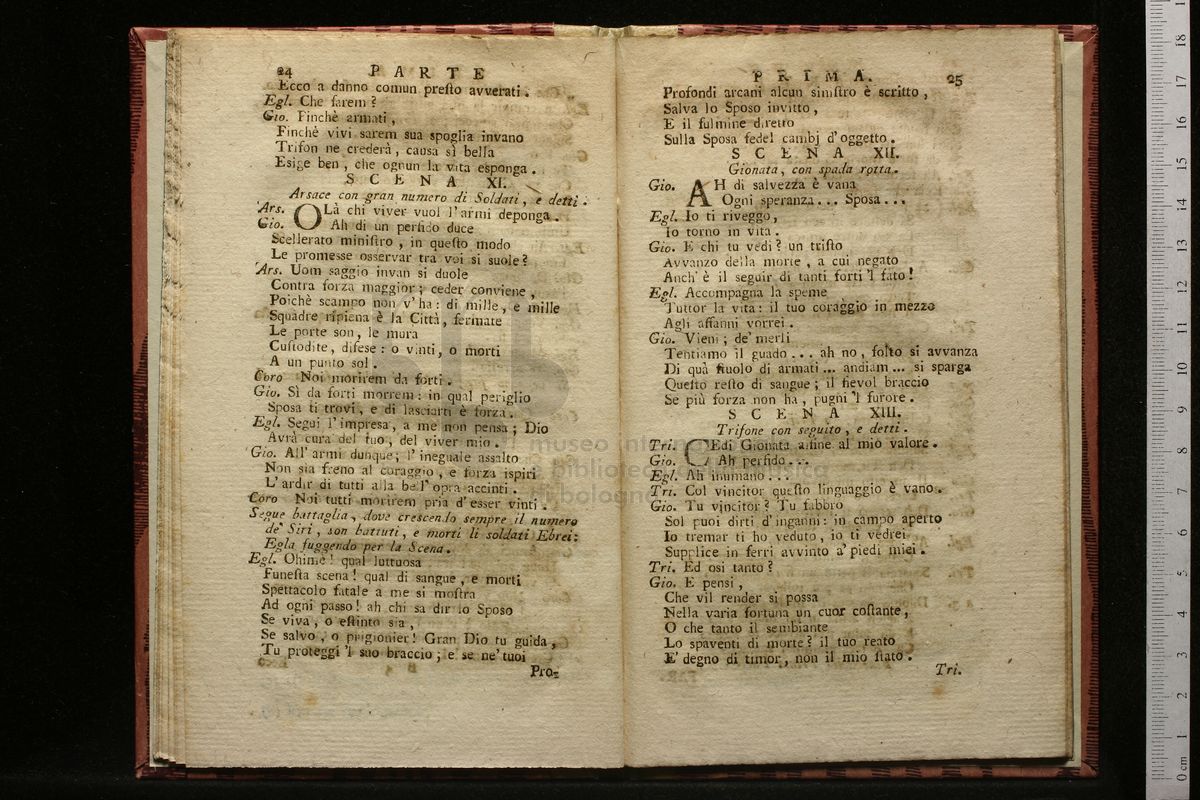 24 PARTE
Ecco a danno comun preſto avverati.
Egl. Che farem?
Gio. Finchè armati,
Finchè vivi sarem sua spoglia invano
Trifon ne crederà, causa sì bella
Esige ben, che ognun la vita esponga.
SCENA XI.
Arsace con gran numero di Soldati, e detti.
Ars. OLà chi viver vuol l'armi deponga.
Gio. Ah di un perfido duce
Scellerato miniſtro, in queſto modo
Le promesse osservar tra voi si suole?
Ars. Uom saggio invan si duole
Contra forza maggior; ceder conviene,
Poichè scampo non v'ha: di mille, e mille
Squadre ripiena è la Città, fermate
Le porte son, le mura
Cuſtodite, difese: o vinti, o morti
A un punto sol.
Coro Noi morirem da forti.
Gio. Sì da forti morrem: in qual periglio
Sposa ti trovi, e di lasciarti è forza.
Egl. Segui l'impresa, a me non pensa; Dio
Avrà cura del tuo, del viver mio.
Gio. All'armi dunque; l'ineguale assalto
Non sia freno al coraggio, e forza ispiri
L'ardir di tutti alla bell'opra accinti.
Coro Noi tutti morirem pria d'esser vinti.
Segue battaglia, dove crescendo sempre il numero
de' Siri, son battuti, e morti li soldati Ebrei:
Egla fuggendo per la Scena.
Egl. Ohimè! qual luttuosa
Funeſta scena! qual di sangue, e morti
Spettacolo fatale a me si moſtra
Ad ogni passo! ah chi sa dir lo Sposo
Se viva, o eſtinto sia,
Se salvo, o prigionier! Gran Dio tu guida,
Tu proteggi 'l suo braccio; e se ne' tuoi
Pro-
PRIMA. 25
Profondi arcani alcun siniſtro è scritto,
Salva lo Sposo invitto,
E il fulmine diretto
Sulla Sposa fedel cambj d'oggetto.
SCENA XII.
Gionata, con spada rotta.
Gio. AH di salvezza è vana
Ogni speranza... Sposa...
Egl. Io ti riveggo,
Io torno in vita.
Gio. E chi tu vedi? un triſto
Avvanzo della morte, a cui negato
Anch'è il seguir di tanti forti 'l fato!
Egl. Accompagna la speme
Tuttor la vita: il tuo coraggio in mezzo
Agli affanni vorrei.
Gio. Vieni; de' merli
Tentiamo il guado... ah no, folto si avvanza
Di quà ſtuolo di armati... andiam... si sparga
Queſto reſto di sangue; il fievol braccio
Se più forza non ha, pugni 'l furore.
SCENA XIII.
Trifone con seguito, e detti.
Tri. CEdi Gionata alfine al mio valore.
Gio. Ah perfido...
Egl. Ah inumano...
Tri. Col vincitor queſto linguaggio è vano.
Gio. Tu vincitor? Tu fabbro
Sol puoi dirti d'inganni: in campo aperto
Io tremar ti ho veduto, io ti vedrei
Supplice in ferri avvinto a' piedi miei.
Tri. Ed osi tanto?
Gio. E pensi,
Che vil render si possa
Nella varia fortuna un cuor coſtante,
O che tanto il sembiante
Lo spaventi di morte? il tuo reato
E' degno di timor, non il mio ſtato.
Tri.